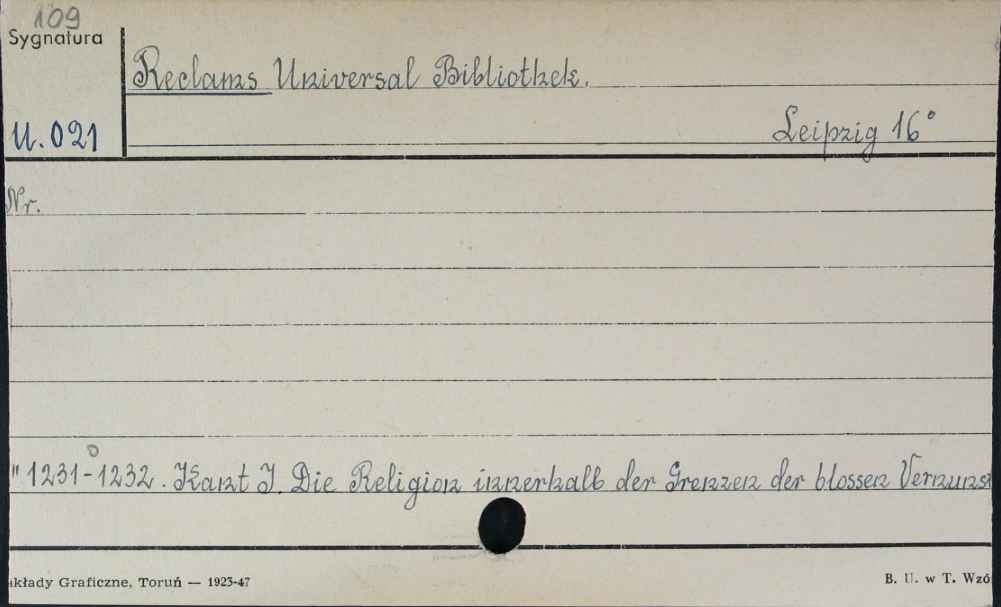 109
Sygnatura
Reclams Universal Bibliothek.
U.021
Leipzig 16°
Nr.
" 1231-1232. Kant J. Die Religion innerhalb der Grenzen der blossen Vernunf
akłady Graficzne, Toruń — 1923-47
B. U. w T. Wzó